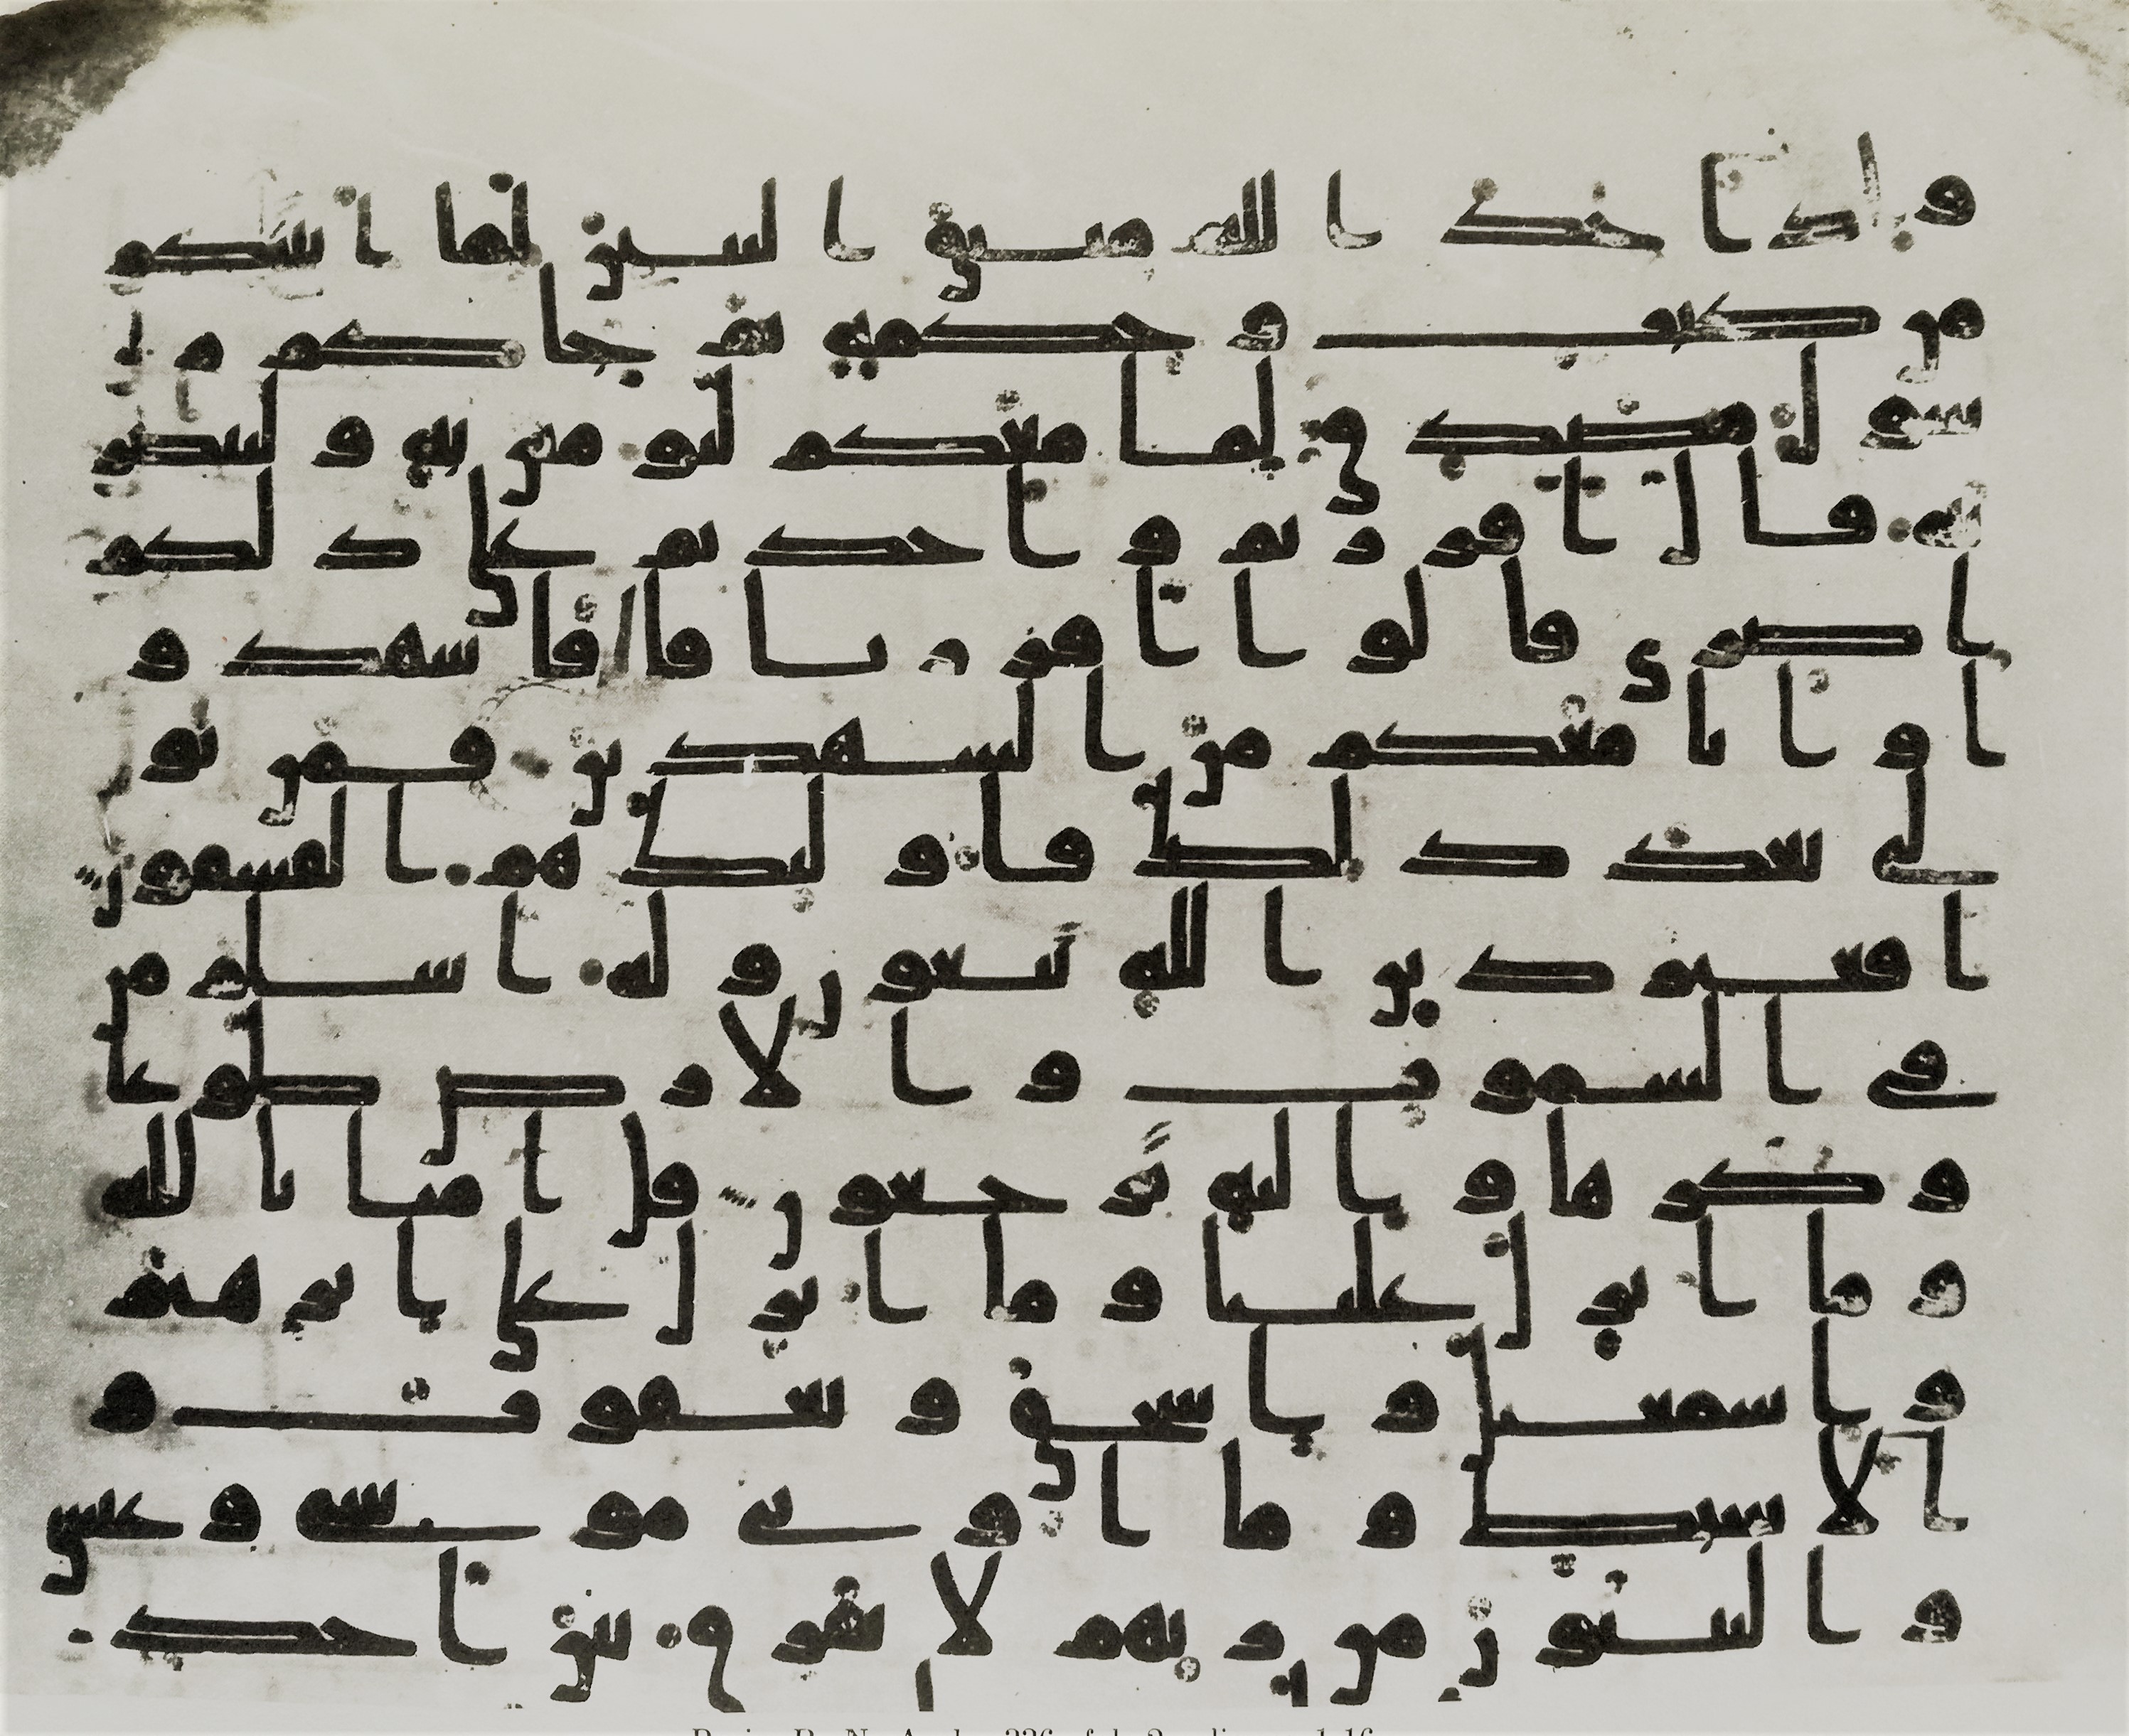 واذ اخذ الله ميثق النبين لما اتيتكم
من كتب و حكمة ثم جاكم ر
سول مصدق لما معكم لتومنن به ولتنصر
نه قال اقررتم واخذتم على ذلكم
اصري قالوا اقررنا قال فاشهدو
ا وانا معكم من الشهدين فمن تو
لى بعد ذلك فاوليك هم الفسقون
افغير دين الله تبغون وله اسلم من
في السموت والارض طوعا
وكرها واليه ترجعون قل امنا بالله
وما انزل علينا وما انزل على ابرهيم
واسمعيل واسحق ويعقوب و
الاسباط وما اوتي موسى وعيسى
والنبيون من ربهم لا نفرق بين احد